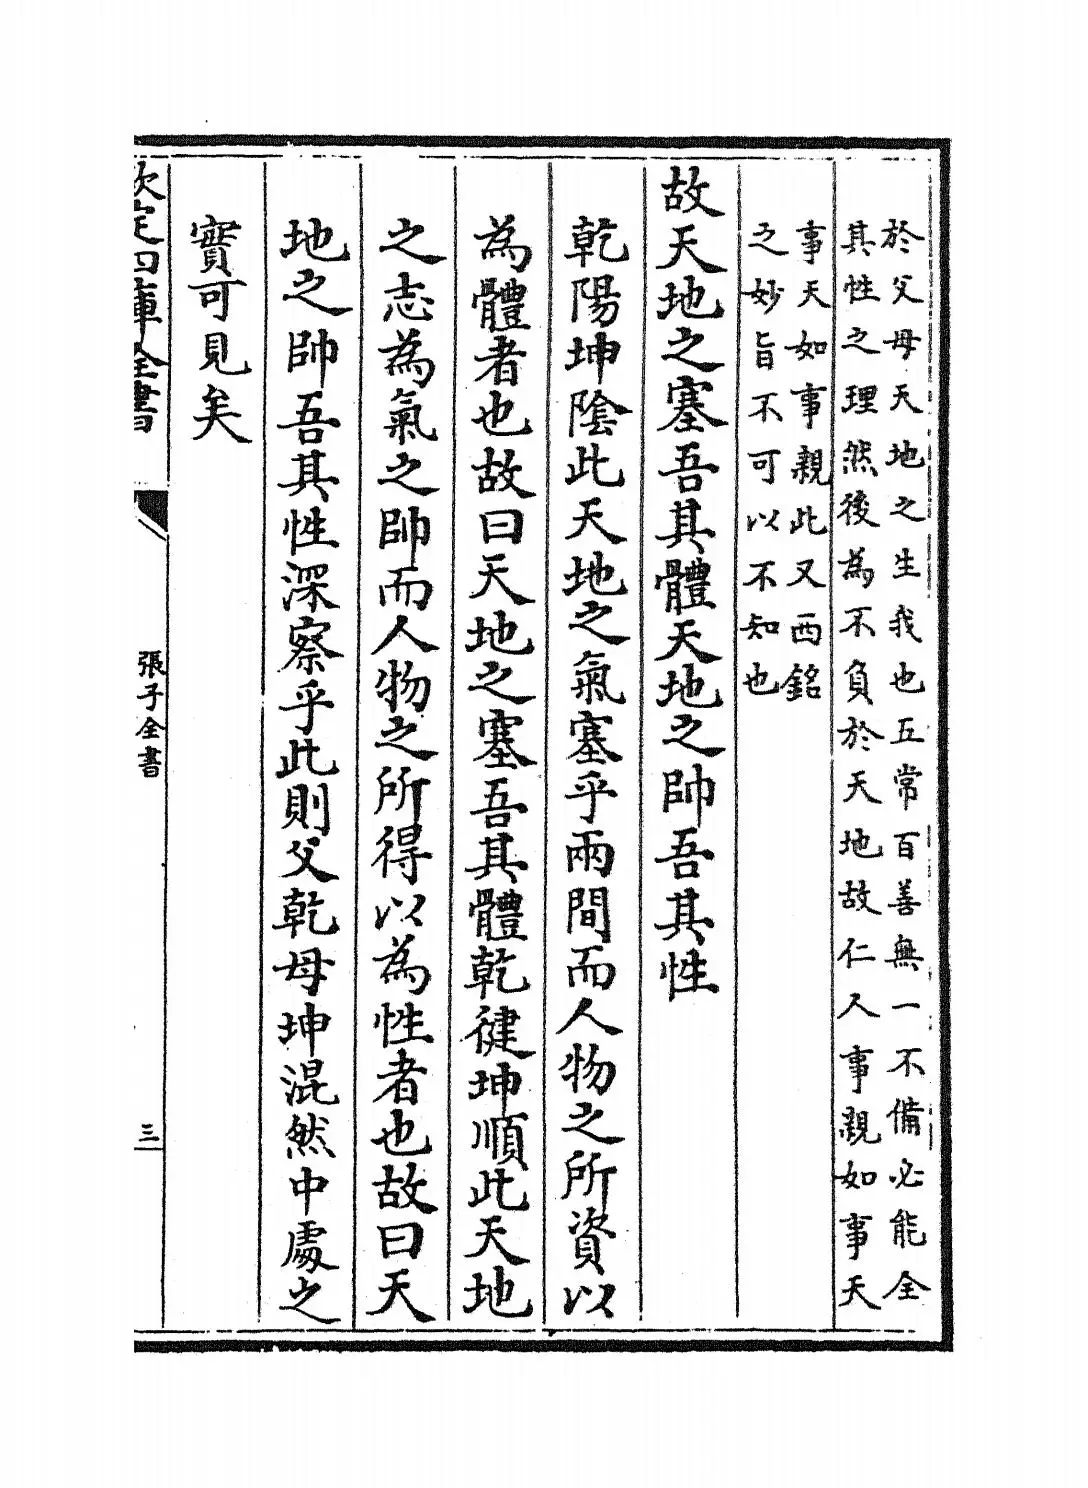 於父母天地之生我也五常百善無一不備必能全
其性之理然後為不負於天地故仁人事親如事天
事天如事親此又西銘
之妙旨不可以不知也
故天地之塞吾其體天地之帥吾其性
乾陽坤陰此天地之氣塞乎兩間而人物之所資以
為體者也故曰天地之塞吾其體乾健坤順此天地
之志為氣之帥而人物之所得以為性者也故曰天
地之帥吾其性深察乎此則父乾母坤混然中處之
實可見矣
欽定四庫全書
張子全書
三